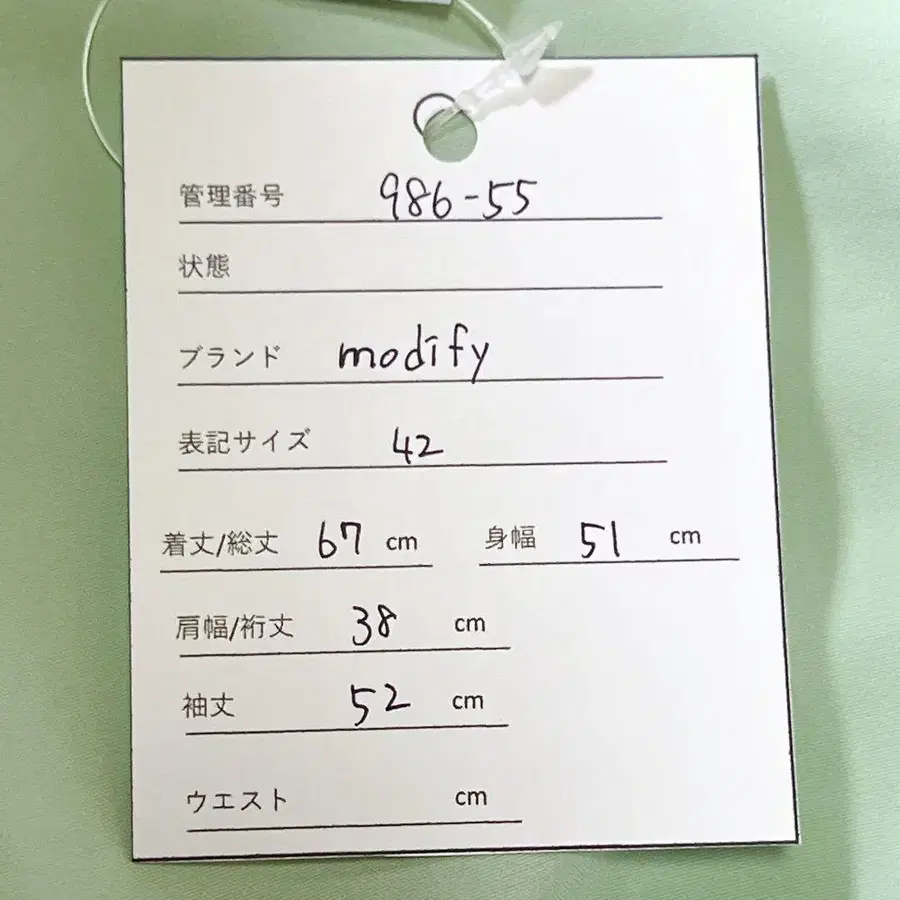 管理番号 986-55
状態
ブランド modify
表記サイズ 42
着丈/総丈 67 cm 身幅 51 cm
肩幅/裄丈 38 cm
袖丈 52 cm
ウエスト cm